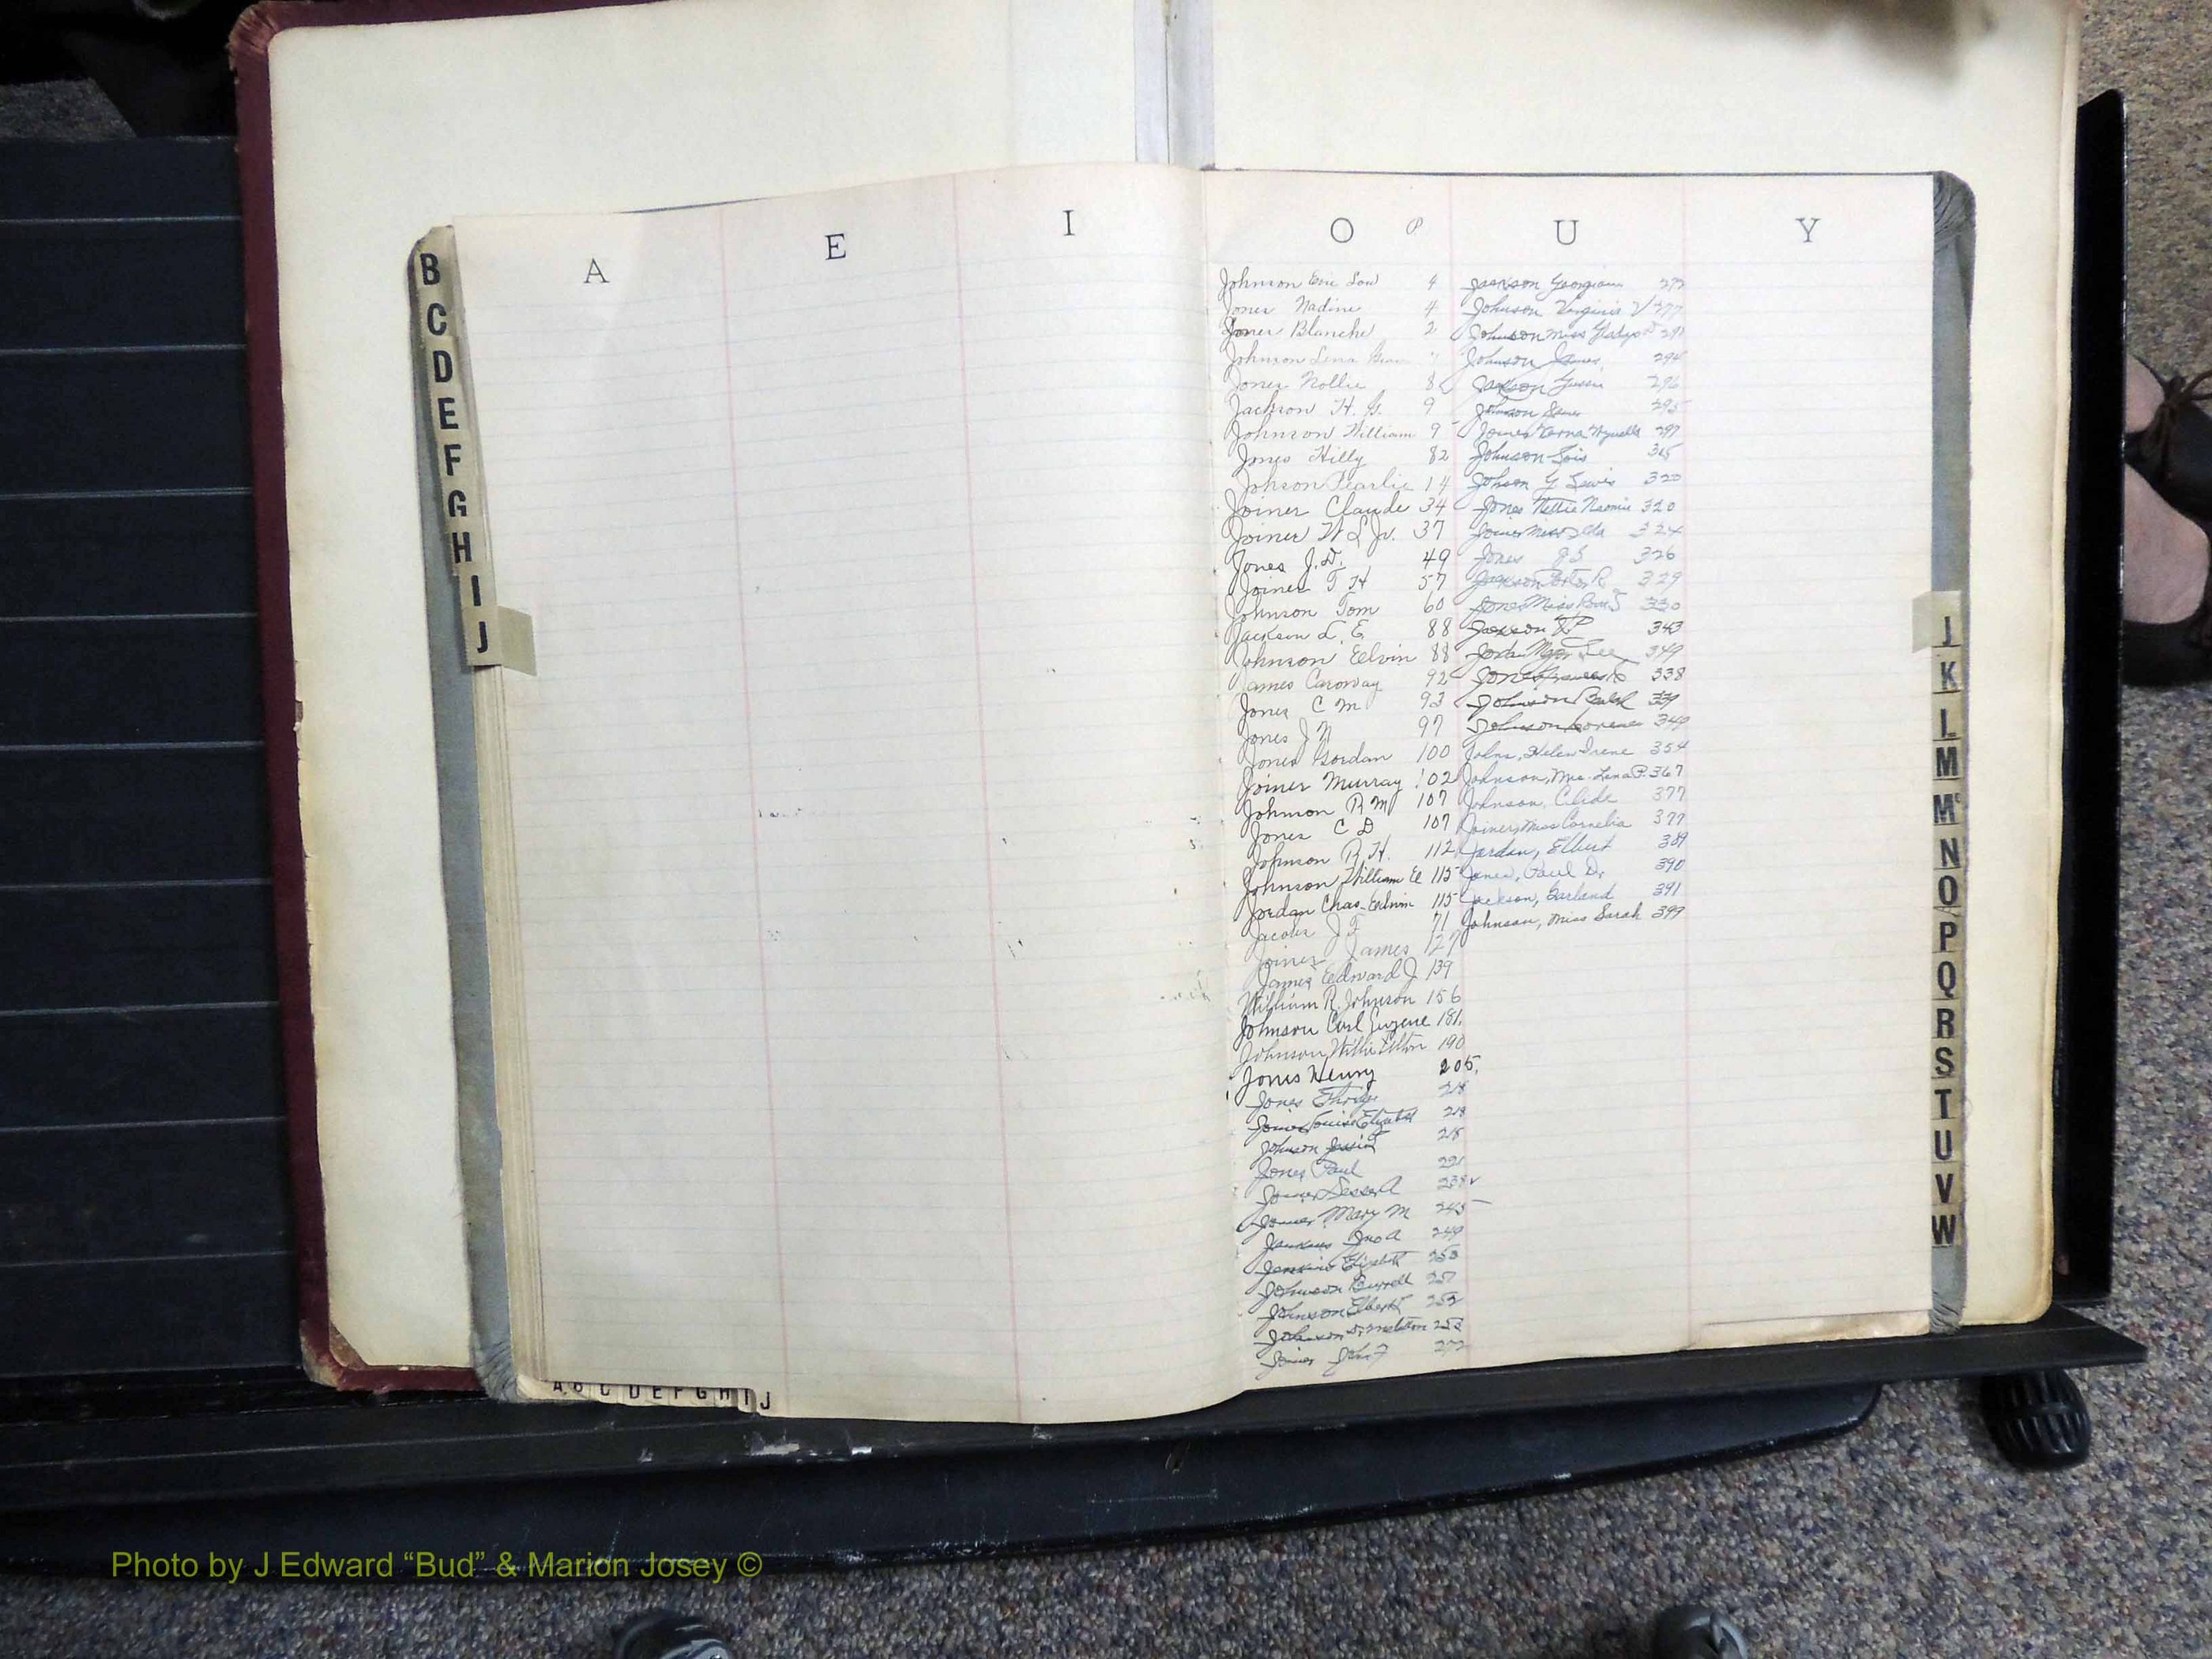 A
E
I
O P
U
Y
B
C
D
E
F
G
H
I
J
Johnson Lou 4
Jones Nadine 4
Jones Blanche 2
Johnson Lena
Jones Nollie 8
Jackson H. G. 9
Johnson William 9
Jones Hilly 82
Johson Pearlie 14
Joiner Claude 34
Joiner W L Jr. 37
Jones J. D. 49
Joiner T H 57
Johnson Tom 60
Jackson L. E. 88
Johnson Edvin 88
James Caroway 92
Jones C M 93
Jones J N 97
Jones Gordan 100
Joiner Murray 102
Johnson R M 107
Jones C D 107
Johnson R. H. 112
Johnson William E 115
Jordan Chas. Edwin 115
Jacobs J F 71
Joiner James 127
James Edward J 139
William R. Johnson 156
Johnson Carl Eugene 181.
Johnson, Willie Elton 190
Jones Henry 205.
Jones 218
Joiner Louise Elizabeth 218
Johnson Jessie 218
Jones Paul 221
Joiner A 238
Joiner Mary M 245
Jenkins Jno A 249
Jenkins Elizabeth 253
Johnson Burrell 257
Johnson Elbert 252
Johnson 253
Joiner John F 272
Jackson Georgiann 272
Johnson Virginia V 277
Johnson Miss Gladys 291
Johnson James 294
Jackson Gussie 296
Johnson 295
Joiner Verna 297
Johnson Lois 315
Johson G Lewis 320
Jones Nettie Naomie 320
Joiner Miss Ida 324
Jones 326
Jackson Porter R 329
Jones Miss 330
Jackson 343
Jordan Lee 349
Jones Frances 338
Johnson 339
Johnson Lorene 340
Johns, Helen Irene 354
Johnson, Mrs. Lena P. 367
Johnson, Clide 377
Joiner, Miss Cornelia 377
Jordan, Elbert 389
Jones, Paul D. 390
Jackson, Garland 391
Johnson, Miss Sarah 399
J
K
L
M
Mc
N
O
P
Q
R
S
T
U
V
W
A B C D E F G H I J
Photo by J Edward “Bud” & Marion Josey ©